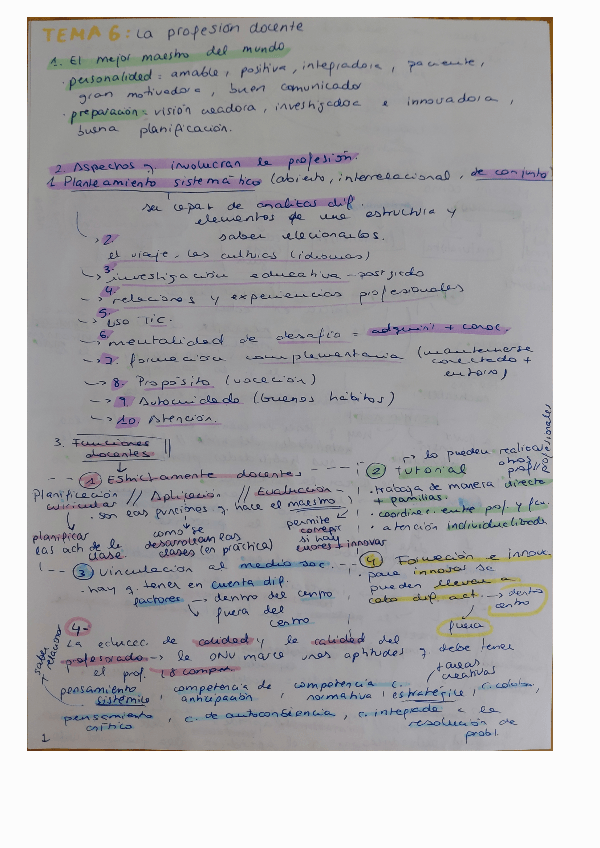 TEMA 6: La profesión docente
1. El mejor maestro del mundo
· personalidad: amable, positiva, integradora, paciente,
gran motivadora, buen comunicador
· preparación: visión creadora, investigadora e innovadora,
buena planificación.
2. Aspectos q involucran la profesión.
1. Planteamiento sistemático (abierto, interrelacional, de conjunto)
ser capaz de analizar dif.
elementos de una estructura y
saber relacionarlos.
2.
el viaje. las culturas (idiomas)
3. investigación educativa - postgrado
4. relaciones y experiencias profesionales
5. uso tic.
6. mentalidad de desafío = adquirir + conoc.
7. formación complementaria (mantenerse
conectado +
entorno)
8. Propósito (vocación)
9. Autocuidado (buenos hábitos)
10. Atención.
3. Funciones
docentes
1 Estrictamente docentes
Planificación // Aplicación // Evaluación
curricular
· son las funciones q hace el maestro
planificar
las act de la
clase
como se
desarrollan las
clases (en práctica)
permite
corregir
si hay
errores + innovar
2 tutorial
lo pueden realizar
otros
profesionales
· trabaja de manera directa
+ familias.
· coordinar entre prof. y
· atención individualizada
3 Vinculación al medio soc.
· hay q tener en cuenta dif.
factores → dentro del centro
fuera del
centro
4 Formación e innov.
para innovar se
pueden llevar a
cabo dif. act. → dentro
centro
fuera
4-
La educac. de calidad y la calidad del
profesorado → la ONU marca unas aptitudes q debe tener
el prof. 
saber
relacionar
pensamiento
sistémico,
competencia de
anticipación,
competencia c.
normativa,
estratégica,
+ áreas
creativas
pensamiento
crítico,
c. de autoconsciencia, c. integrada a la
resolución de
probl.
1